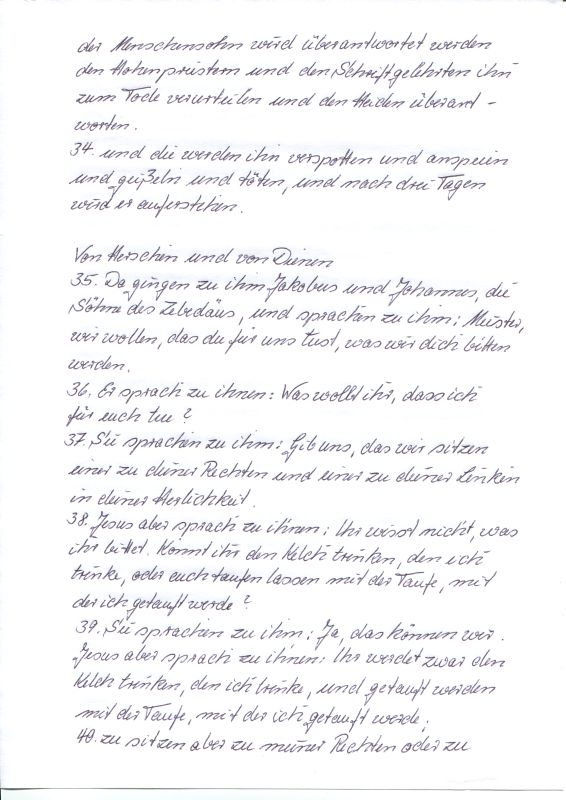 der Menschensohn wird überantwortet werden
den Hohenpriestern und den Schriftgelehrten ihn
zum Tode verurteilen und den Heiden überant-
worten.
34. und die werden ihn verspotten und anspeien
und geißeln und töten, und nach drei Tagen
wird er auferstehen.
Von Herschen und von Dienen
35. Da gingen zu ihm Jakobus und Johannes, die
Söhne des Zebedäus, und sprachen zu ihm: Meister,
wir wollen, das du für uns tust, was wir dich bitten
werden.
36. Er sprach zu ihnen: Was wollt ihr, dass ich
für euch tue?
37. Sie sprachen zu ihm: Gib uns, das wir sitzen
einer zu deiner Rechten und einer zu deiner Linken
in deiner Herlichkeit.
38. Jesus aber sprach zu ihnen: Ihr wisst nicht, was
ihr bittet. Könnt ihr den Kelch trinken, den ich
trinke, oder euch taufen lassen mit der Taufe, mit
der ich getauft werde?
39. Sie sprachen zu ihm: Ja, das können wir.
Jesus aber sprach zu ihnen: Ihr werdet zwar den
Kelch trinken, den ich trinke, und getauft werden
mit der Taufe, mit der ich getauft werde;
40. zu sitzen aber zu meiner Rechten oder zu